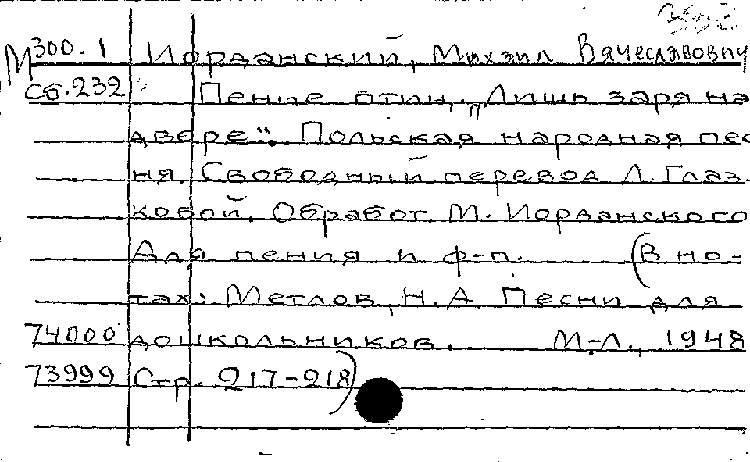 М 300.1 Иорданский, Михаил Вячеславович
Сб.232 Пение отин. „Лишь заря на
дворе". Польская народная пес
ня. Свободный перевод Л. Глаз
ковой. Обработ. М. Иорданского
Для пения и ф-п. (В но-
тах: Метлов, Н.А. Песни для
74000 дошкольников. М-Л., 1948
73999 Стр. 217-218)